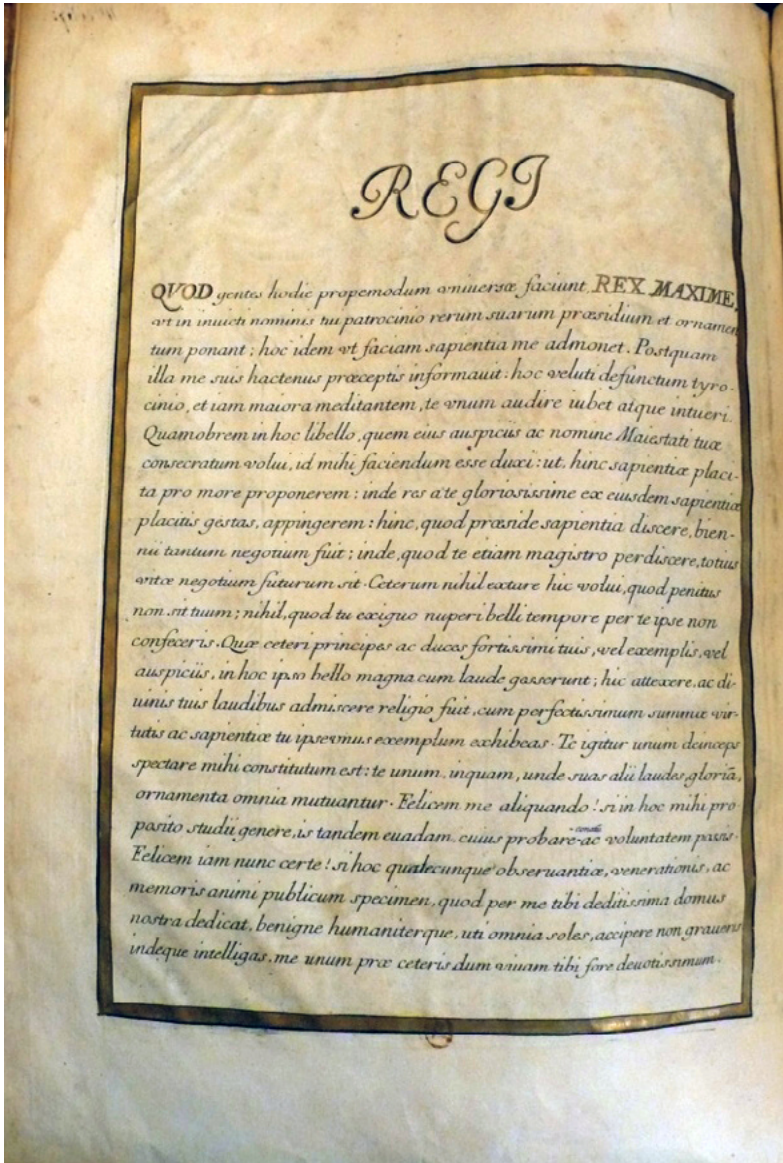 REGI
QVOD gentes hodie propemodum vniuersæ faciunt, REX MAXIME,
vt in inuicti nominis tui patrocinio rerum suarum præsidium et ornamen
tum ponant; hoc idem vt faciam sapientia me admonet. Postquam
illa me suis hactenus præceptis informauit: hoc veluti defunctum tyro-
cinio, et iam maiora meditantem, te vnum audire iubet atque intueri.
Quamobrem in hoc libello, quem eius auspiciis ac nomine Maiestati tuæ
consecratum volui, id mihi faciendum esse duxi: ut hinc sapientiæ placi-
ta pro more proponerem: inde res a te gloriosissime ex eiusdem sapientiæ
placitis gestas, appingerem: hinc, quod præside sapientia discere, bien-
nii tantum negotium fuit; inde, quod te etiam magistro perdiscere, totius
vitæ negotium futurum sit. Ceterum nihil extare hic volui, quod penitus
non sit tuum; nihil, quod tu exiguo nuperi belli tempore per te ipse non
confeceris. Quæ ceteri principes ac duces fortissimi tuis, vel exemplis, vel
auspiciis, in hoc ipso bello magna cum laude gesserunt; hic attexere, ac di-
uinis tuis laudibus admiscere religio fuit, cum perfectissimum summæ vir-
tutis ac sapientiæ tu ipse vnus exemplum exhibeas. Te igitur unum deinceps
spectare mihi constitutum est: te unum, inquam, unde suas alii laudes, gloriã,
ornamenta omnia mutuantur. Felicem me aliquando! si in hoc mihi pro
posito studii genere, is tandem euadam, cuius probare ac voluntatem possis.
Felicem iam nunc certe! si hoc qualecunque obseruantiæ, venerationis, ac
memoris animi publicum specimen, quod per me tibi deditissima domus
nostra dedicat, benigne humaniterque, uti omnia soles, accipere non graueris
indeque intelligas, me unum præ ceteris dum viuam tibi fore deuotissimum.